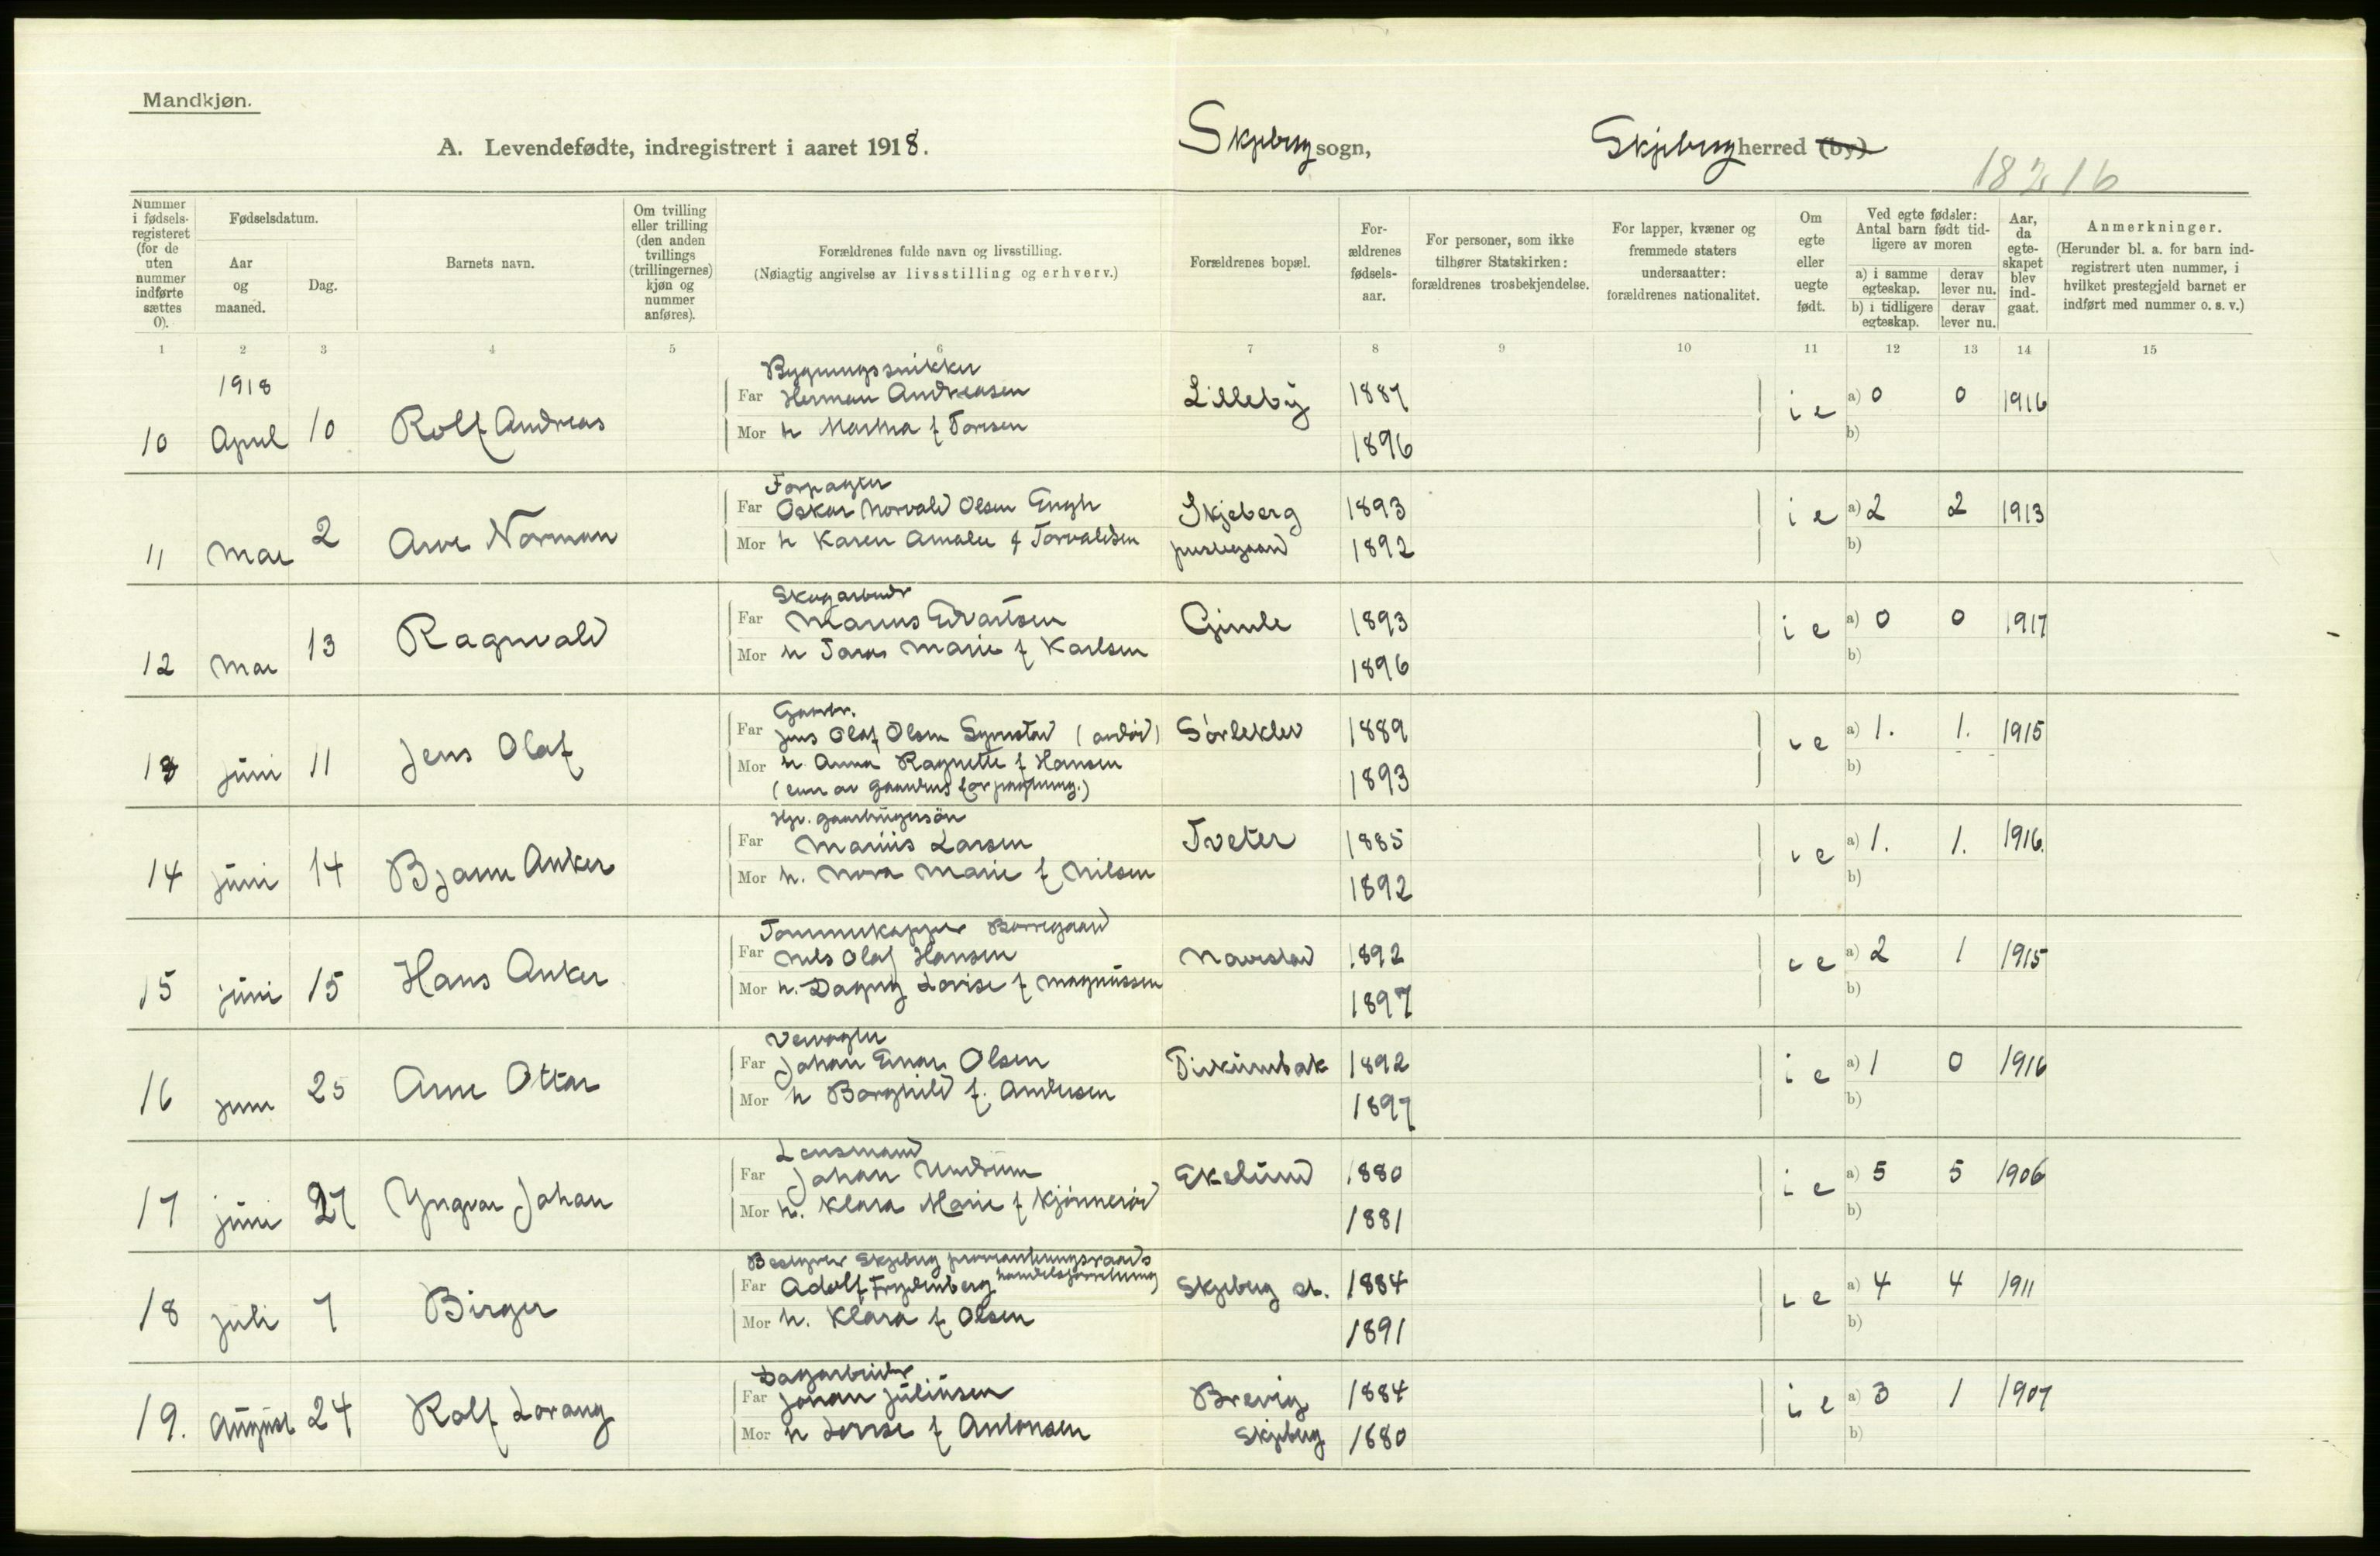 Mandkjøn.
A. Levendefødte, indregistrert i aaret 1918.
Skjeberg sogn, Skjeberg herred (by)
18216
Nummer i fødsels-registeret (for de uten nummer indførte sættes 0).
Fødselsdatum.
Aar og maaned.
Dag.
Barnets navn.
Om tvilling eller trilling (den anden tvillings (trillingernes) kjøn og nummer anføres).
Forældrenes fulde navn og livsstilling.
(Nøiagtig angivelse av livsstilling og erhverv.)
Forældrenes bopæl.
For-ældrenes fødsels-aar.
For personer, som ikke tilhører Statskirken: forældrenes trosbekjendelse.
For lapper, kvæner og fremmede staters undersaatter: forældrenes nationalitet.
Om egte eller uegte født.
Ved egte fødsler: Antal barn født tid-ligere av moren
a) i samme egteskap.
derav lever nu.
b) i tidligere egteskap.
derav lever nu.
Aar, da egte-skapet blev ind-gaat.
Anmerkninger.
(Herunder bl. a. for barn ind-registrert uten nummer, i hvilket prestegjeld barnet er indført med nummer o. s. v.)
1 2 3 4 5 6 7 8 9 10 11 12 13 14 15
Bygningssnikker
1918
Far Herman Andreasen Lilleby 1887 i e a) 0 0 1916
10 April 10 Rolf Andreas
Mor h Martha f Torsen 1896 b)
Forpagter
Far Oskar Norvald Olsen Engh Skjeberg 1893 i e a) 2 2 1913
11 Mai 2 Arve Norman
Mor h Karen Amalie f Torvaldsen prestegaard 1892 b)
Skogarbeidr
Far Marius Edvartsen Gimle 1893 i e a) 0 0 1917
12 Mai 13 Ragnvald
Mor h Marie f Karlsen 1896 b)
Gaardbr.
Far Jens Olaf Olsen 1889 i e a) 1. 1. 1915
13 juni 11 Jens Olaf
Mor h. Anna Ragnette f Hansen 1893 b)
(eier av gaardens forpagtning.)
Far Marius Larsen Tveter 1885 i e a) 1. 1. 1916.
14 juni 14 Bjarne Anker
Mor h. Nora Marie f Nilsen 1892 b)
Tømmerkapper Borregaard
Far Nils Olaf Hansen Navestad 1892 i e a) 2 1 1915
15 juni 15 Hans Anker
Mor h. Dagny Lovise f Magnussen 1897 b)
Veivogter
Far Johan Einar Olsen 1892 i e a) 1 0 1916
16 juni 25 Arne Ottar
Mor h Borghild f. Andersen 1897 b)
Lensmand
Far Johan Undrum Ekelund 1880 i e a) 5 5 1906
17 juni 27 Yngvar Johan
Mor h. Klara Marie f Kjønnerød 1881 b)
Bestyrer Skjeberg provianteringsraads
handelsforretning
Far Adolf Frydenberg Skjeberg st. 1884 i e a) 4 4 1911
18 juli 7 Birger
Mor h. Klara f Olsen 1891 b)
Dagarbeider
Far Johan Juliusen Brevig 1884 i e a) 3 1 1907
19. August 24 Rolf Lorang
Mor h Lovise f Antonsen Skjeberg 1880 b)